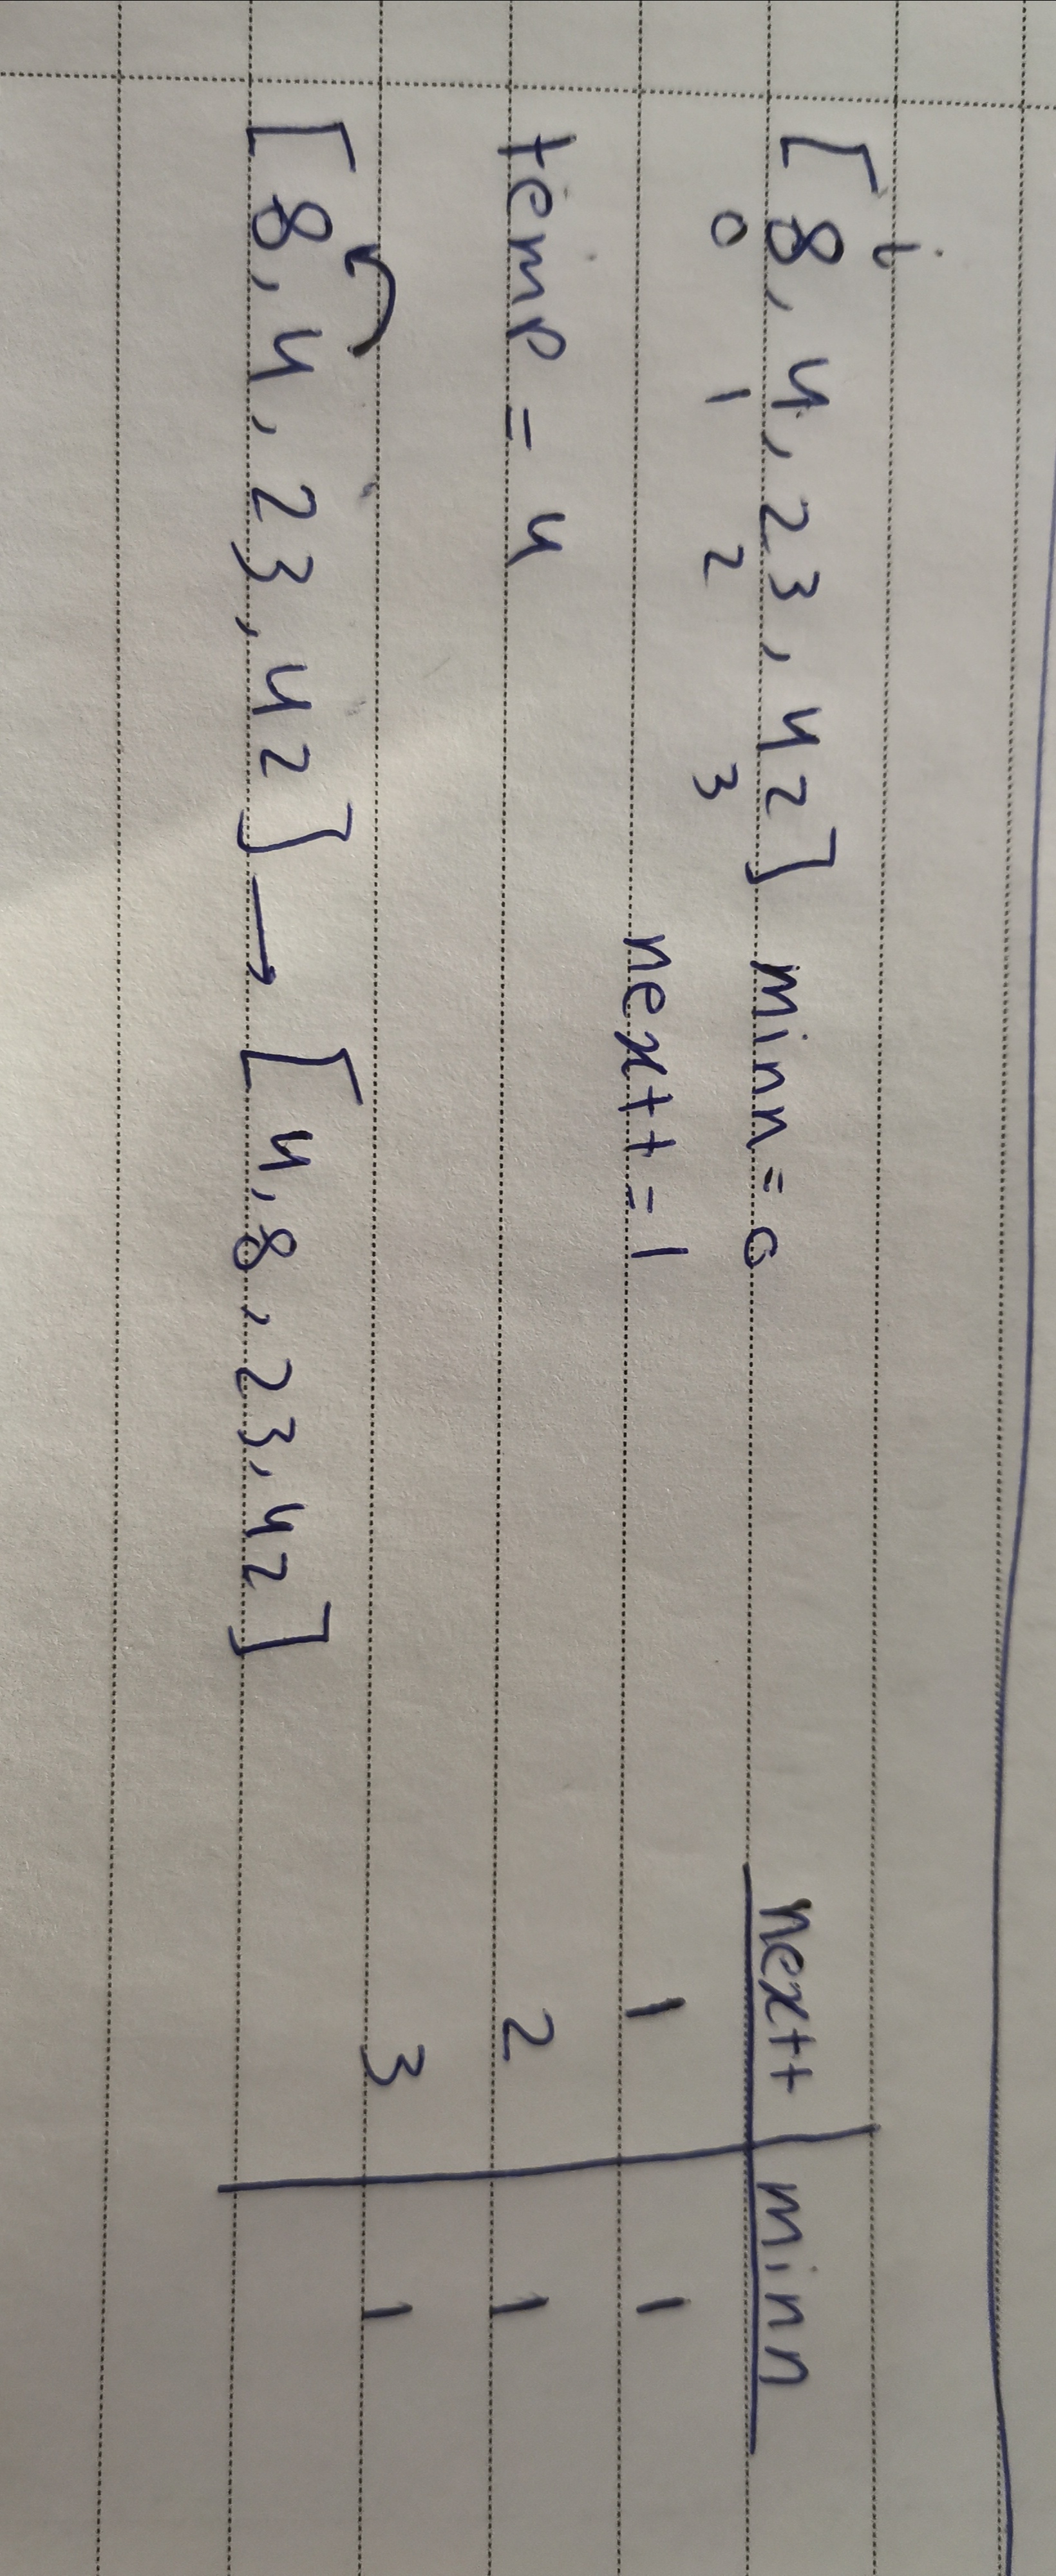 i
[ 8, 4, 23, 42 ] minn = 0
0 1 2 3
nextt = 1
temp = 4
[ 8, 4, 23, 42 ] → [ 4, 8, 23, 42 ]
nextt | minn
1 | 1
2 | 1
3 | 1